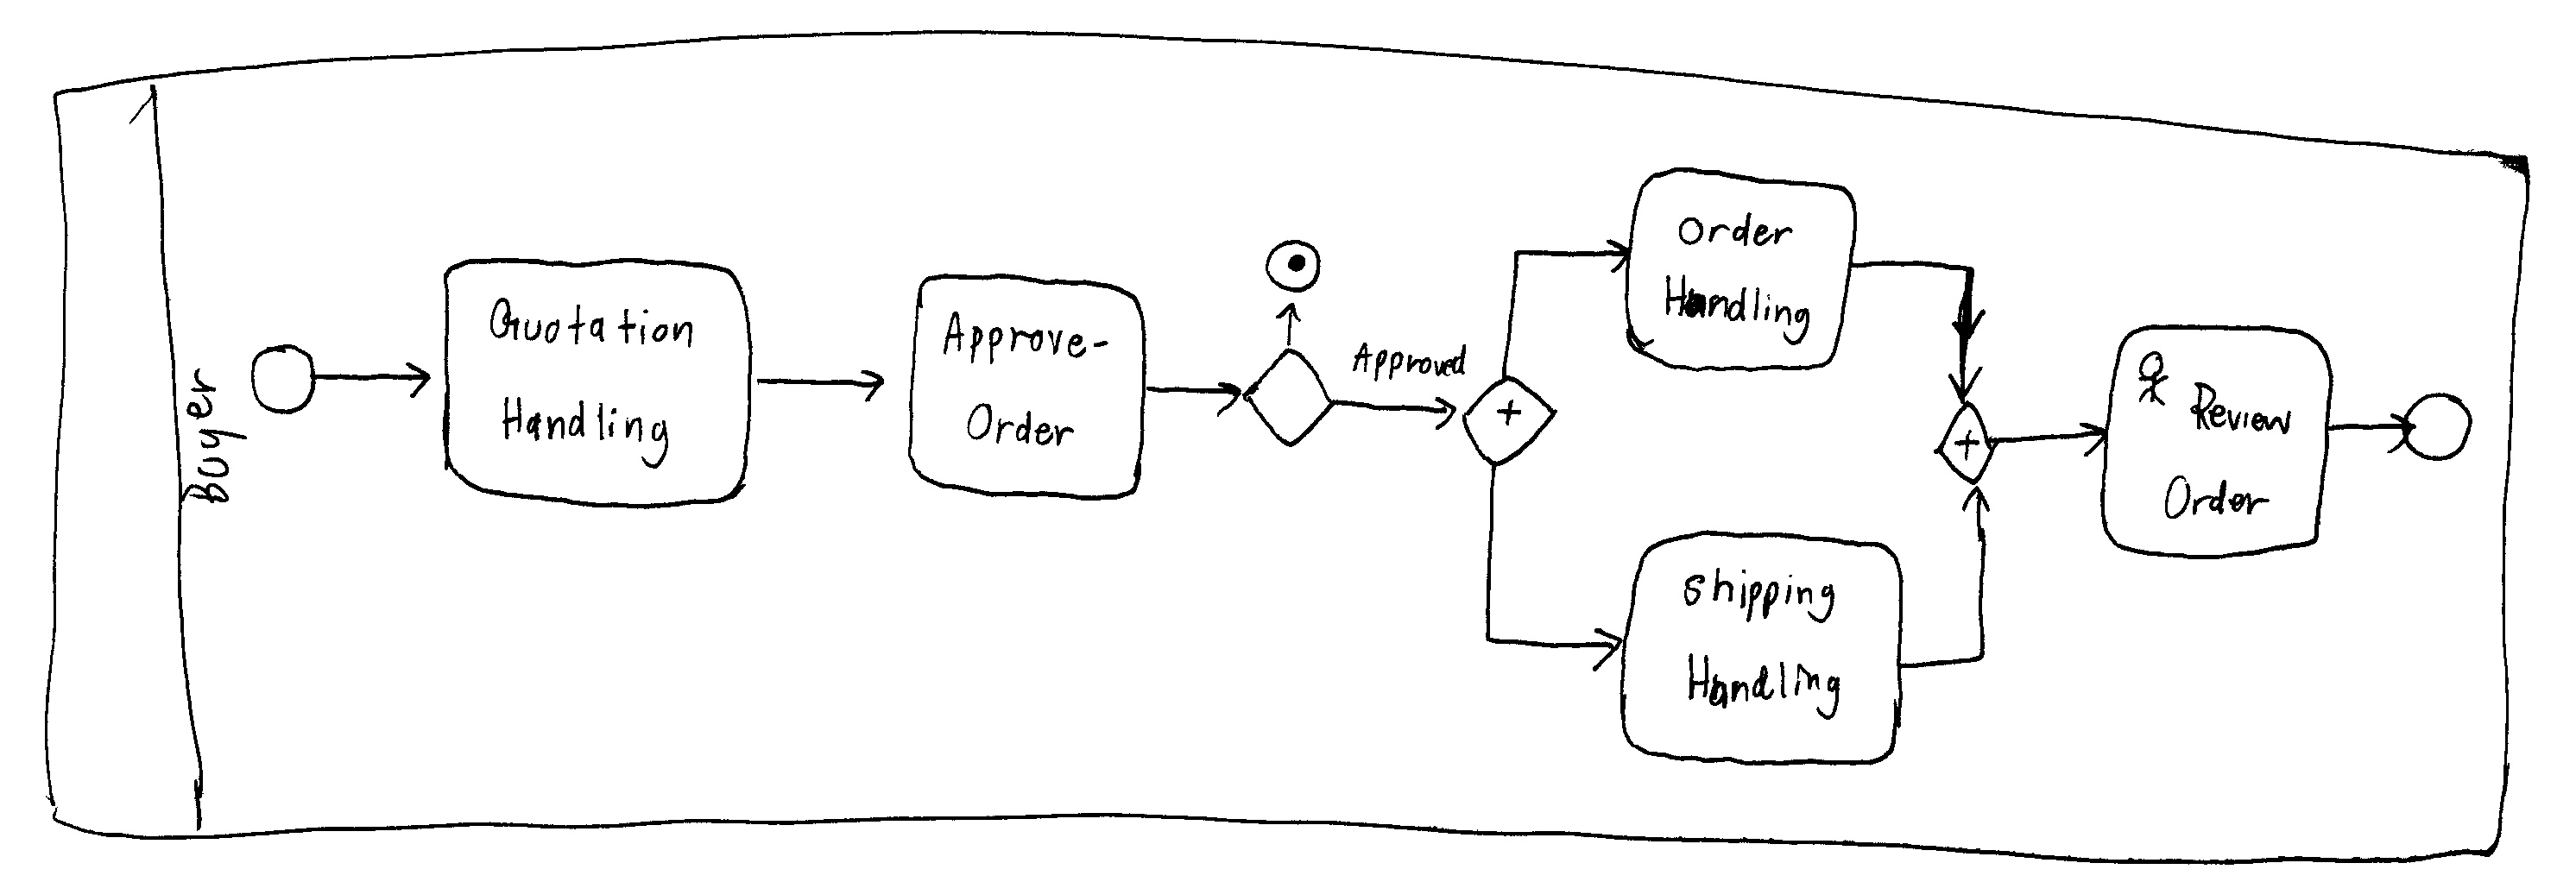 Buyer
Quotation
Handling
Approve-
Order
Approved
+
Order
Handling
Shipping
Handling
+
Review
Order